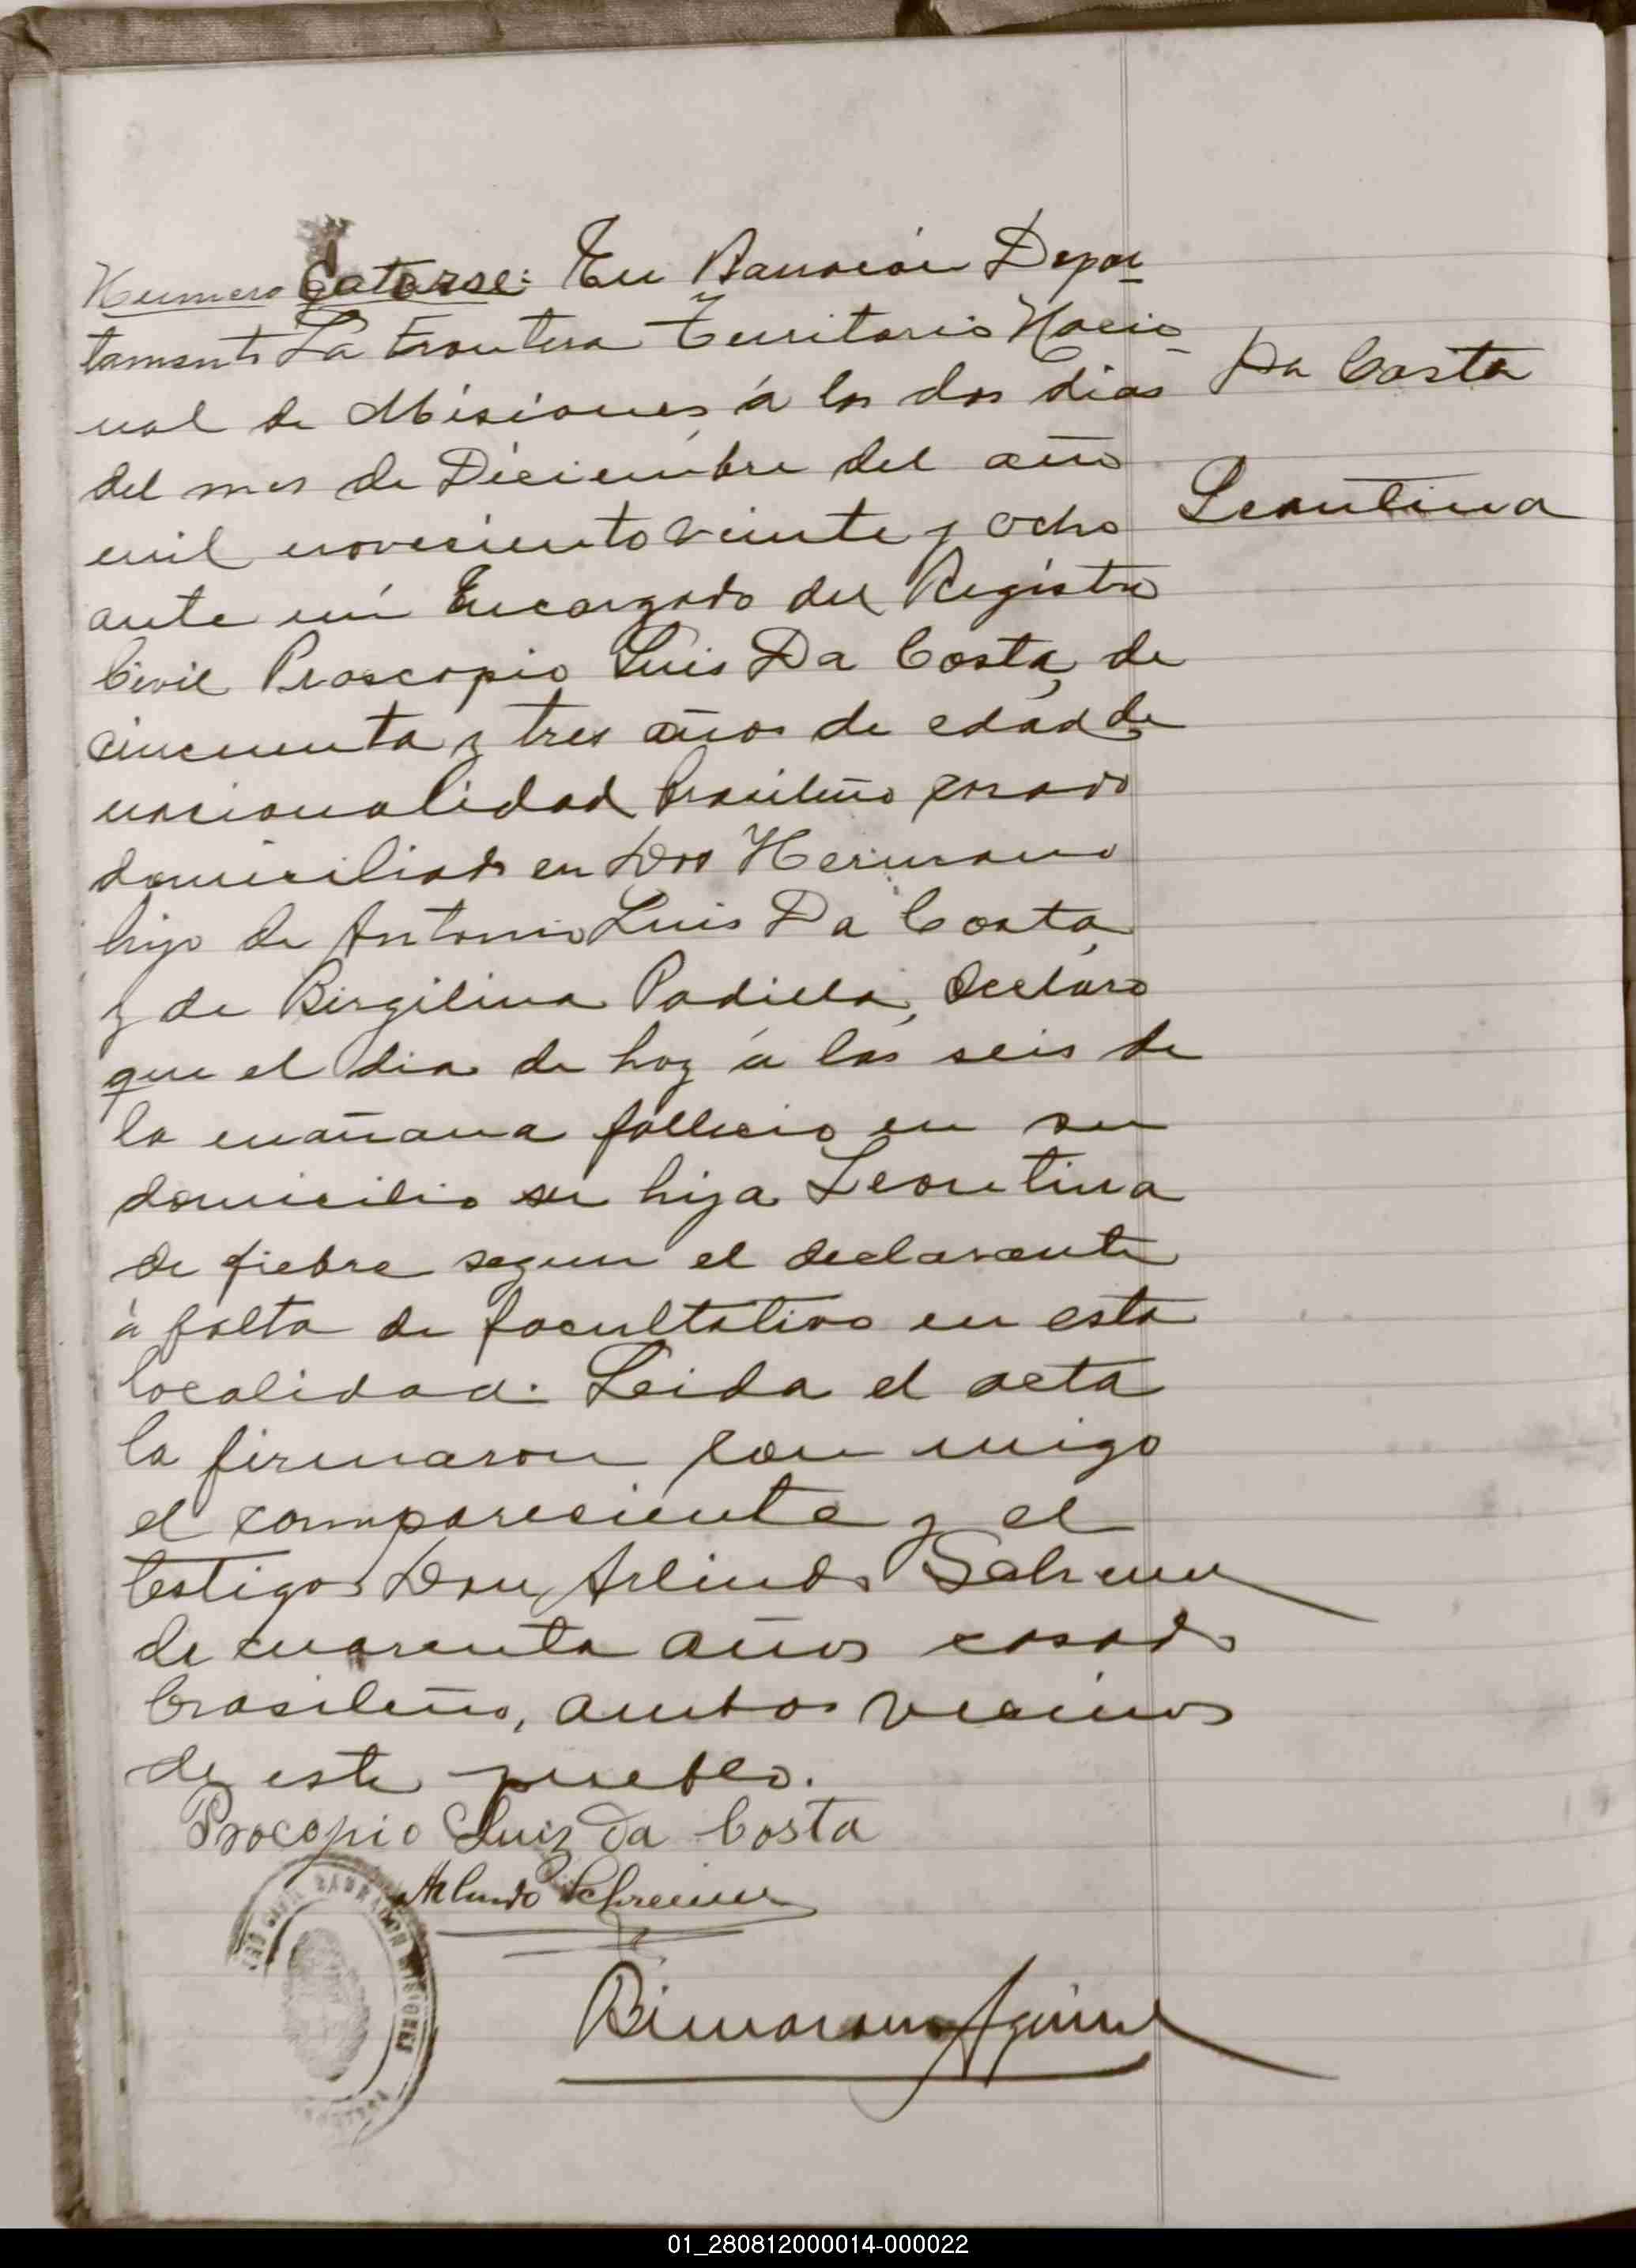 Numero Catorse: En Barracón Depar
tamento La Frontera Territorio Nacio
nal de Misiones, á los dos dias
del mes de Diciembre del año
mil noveciento veinte y ocho
ante mí Encargado del Registro
Civil Proscopio Luis Da Costa, de
cincuenta y tres años de edad de
nacionalidad brasileño casado
domiciliado en Dos Hermano
hijo de Antonio Luis Da Costa,
y de Birgilina Padilla, declaro
que el dia de hoy á las seis de
la mañana fallecio en su
domicilio su hija Leontina
de fiebre segun el declarante
á falta de facultativo en esta
localidad. Leida el acta
la firmaron con migo
el compareciente y el
testigo Don Arlindo Schreiner
de cuarenta años casado
brasileño, ambos vecinos
de este pueblo.
Procopio Luiz da Costa
Arlindo Schreiner
Aguirre
Da Costa
Leontina
CIVIL BARRACON MISIONES
FRONTERA
01_280812000014-000022